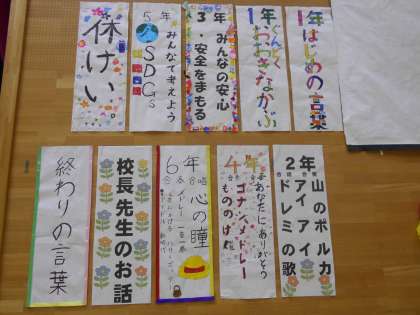 1年はじめの言葉
1年
ぐんぐん
おおきなかぶ
3年 みんなの安心
・安全をまもる
5年
みんなで考えよう
SDGs
休けい
2年
合唱 合奏
山のポルカ
アイアイ
ドレミの歌
4年
あなたにありがとう
コナンメドレー
もののけ
6年
合唱
心の瞳
校長先生のお話
終わりの言葉